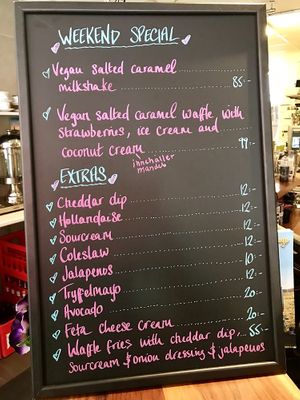 WEEKEND SPECIAL
Vegan salted caramel
milkshake ........ 85:-
Vegan salted caramel waffle with
strawberries, ice cream and
coconut cream ........ 99:-
innehåller
mandel
EXTRAS
Cheddar dip ........ 12:-
Hollandaise ........ 12:-
Sourcream ........ 12:-
Coleslaw ........ 12:-
Jalapenos ........ 10:-
Tryffelmayo ........ 12:-
Avocado ........ 20:-
Feta cheese cream ........ 20:-
Waffle fries with cheddar dip... 55:-
Sourcream & onion dressing & jalapenos